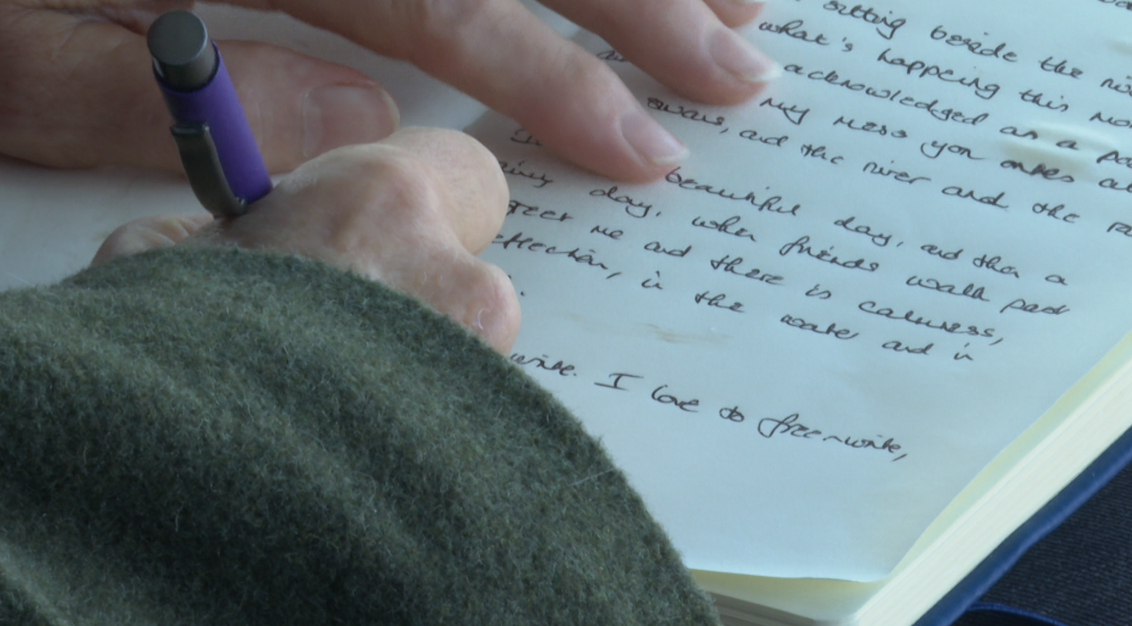 sitting beside the
what's happening this
acknowledged as a
My mess you
swans, and the river and the
beautiful day, and then a
day, when friends walk past
me and there is calmness,
reflection, in the water and in
write. I love to free-write,